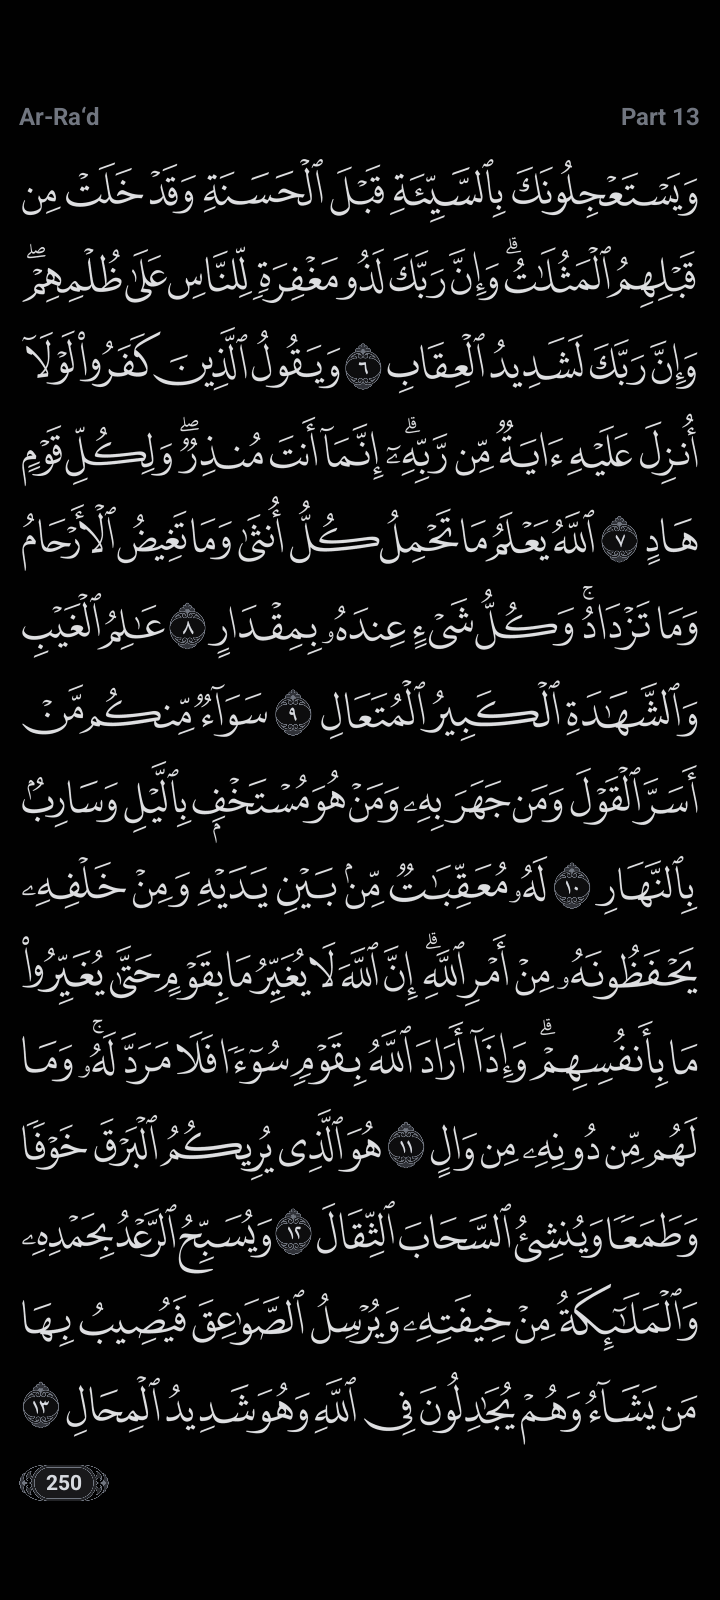 Ar-Ra‘d
Part 13
وَيَسْتَعْجِلُونَكَ بِٱلسَّيِّئَةِ قَبْلَ ٱلْحَسَنَةِ وَقَدْ خَلَتْ مِن
قَبْلِهِمُ ٱلْمَثُلَـٰتُ ۗ وَإِنَّ رَبَّكَ لَذُو مَغْفِرَةٍ لِّلنَّاسِ عَلَىٰ ظُلْمِهِمْ ۖ
وَإِنَّ رَبَّكَ لَشَدِيدُ ٱلْعِقَابِ ٦ وَيَقُولُ ٱلَّذِينَ كَفَرُوا۟ لَوْلَآ
أُنزِلَ عَلَيْهِ ءَايَةٌ مِّن رَّبِّهِۦٓ ۗ إِنَّمَآ أَنتَ مُنذِرٌ ۖ وَلِكُلِّ قَوْمٍ
هَادٍ ٧ ٱللَّهُ يَعْلَمُ مَا تَحْمِلُ كُلُّ أُنثَىٰ وَمَا تَغِيضُ ٱلْأَرْحَامُ
وَمَا تَزْدَادُ ۚ وَكُلُّ شَىْءٍ عِندَهُۥ بِمِقْدَارٍ ٨ عَـٰلِمُ ٱلْغَيْبِ
وَٱلشَّهَـٰدَةِ ٱلْكَبِيرُ ٱلْمُتَعَالِ ٩ سَوَآءٌ مِّنكُم مَّنْ
أَسَرَّ ٱلْقَوْلَ وَمَن جَهَرَ بِهِۦ وَمَنْ هُوَ مُسْتَخْفٍۭ بِٱلَّيْلِ وَسَارِبٌۢ
بِٱلنَّهَارِ ١٠ لَهُۥ مُعَقِّبَـٰتٌ مِّنۢ بَيْنِ يَدَيْهِ وَمِنْ خَلْفِهِۦ
يَحْفَظُونَهُۥ مِنْ أَمْرِ ٱللَّهِ ۗ إِنَّ ٱللَّهَ لَا يُغَيِّرُ مَا بِقَوْمٍ حَتَّىٰ يُغَيِّرُوا۟
مَا بِأَنفُسِهِمْ ۗ وَإِذَآ أَرَادَ ٱللَّهُ بِقَوْمٍ سُوٓءًا فَلَا مَرَدَّ لَهُۥ ۚ وَمَا
لَهُم مِّن دُونِهِۦ مِن وَالٍ ١١ هُوَ ٱلَّذِى يُرِيكُمُ ٱلْبَرْقَ خَوْفًا
وَطَمَعًا وَيُنشِئُ ٱلسَّحَابَ ٱلثِّقَالَ ١٢ وَيُسَبِّحُ ٱلرَّعْدُ بِحَمْدِهِۦ
وَٱلْمَلَـٰٓئِكَةُ مِنْ خِيفَتِهِۦ وَيُرْسِلُ ٱلصَّوَٰعِقَ فَيُصِيبُ بِهَا
مَن يَشَآءُ وَهُمْ يُجَـٰدِلُونَ فِى ٱللَّهِ وَهُوَ شَدِيدُ ٱلْمِحَالِ ١٣
250